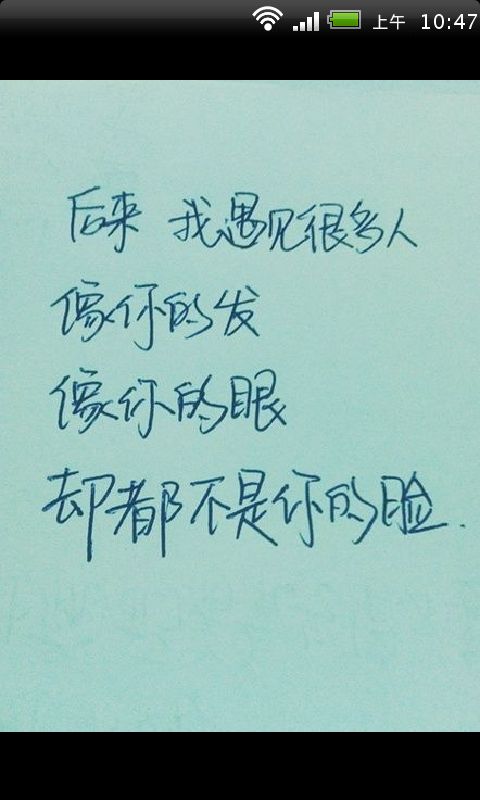 上午 10:47
后来 我遇见很多人
像你的发
像你的眼
却都不是你的脸.